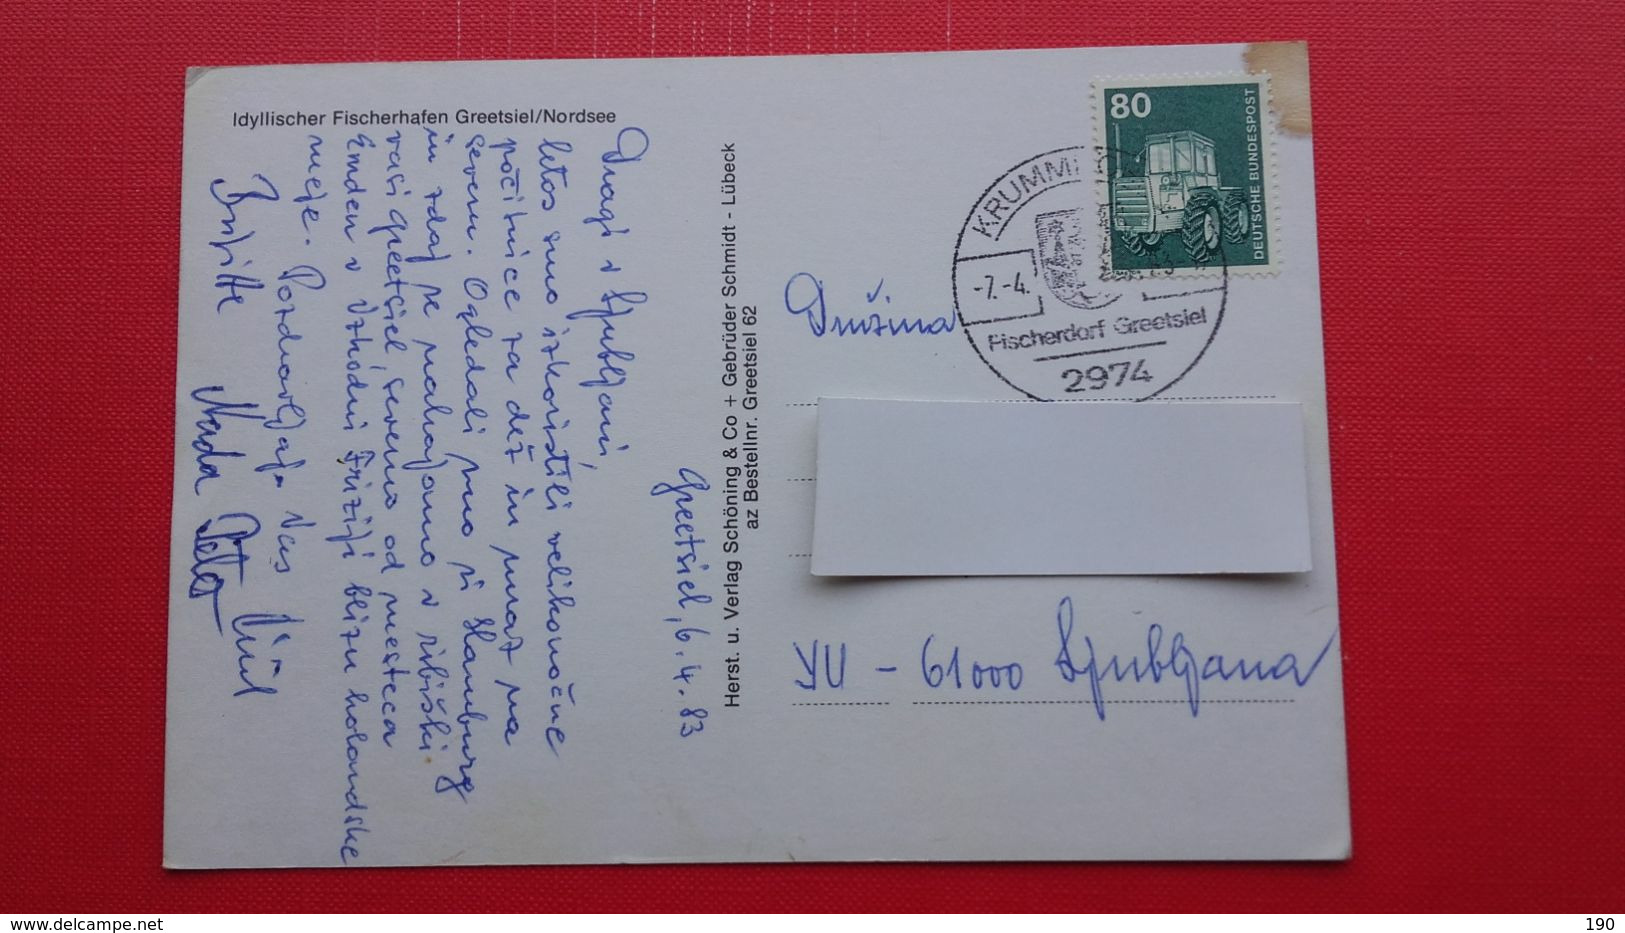 Idyllischer Fischerhafen Greetsiel/Nordsee
Greetsiel, 6.4.83
Dragi v Ljubljani,
letos smo izkoristili velikonočne
počitnice za dež in mraz na
severu. Ogledali smo si Hamburg
in zdaj se nahajamo v ribiški
vasi Greetsiel, severno od mesteca
Emden v Vzhodni Friziji blizu holandske
meje. Pozdravljajo Vas
Brigitte Nada Peter
Herst. u. Verlag Schöning & Co + Gebrüder Schmidt - Lübeck
az Bestellnr. Greetsiel 62
80
DEUTSCHE BUNDESPOST
KRUMM
-7.-4.
Fischerdorf Greetsiel
2974
Družina
YU - 61000 Ljubljana
190